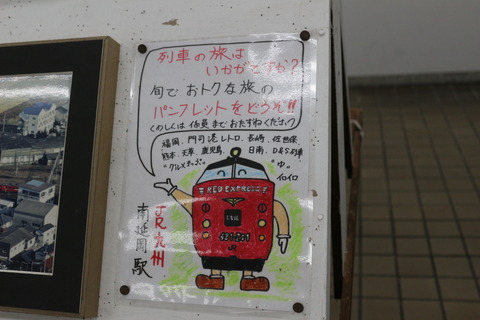 列車の旅は
いかがですか?
旬でおトクな旅の
パンフレットをどうぞ!!
(くわしくは係員までおたずねください)
福岡、門司港レトロ、長崎、佐世保、
熊本、天草、鹿児島、日南、D&S列車
"グルメきっぷ" "ゆ" イロイロ
RED EXPRESS
JR九州
南延岡駅